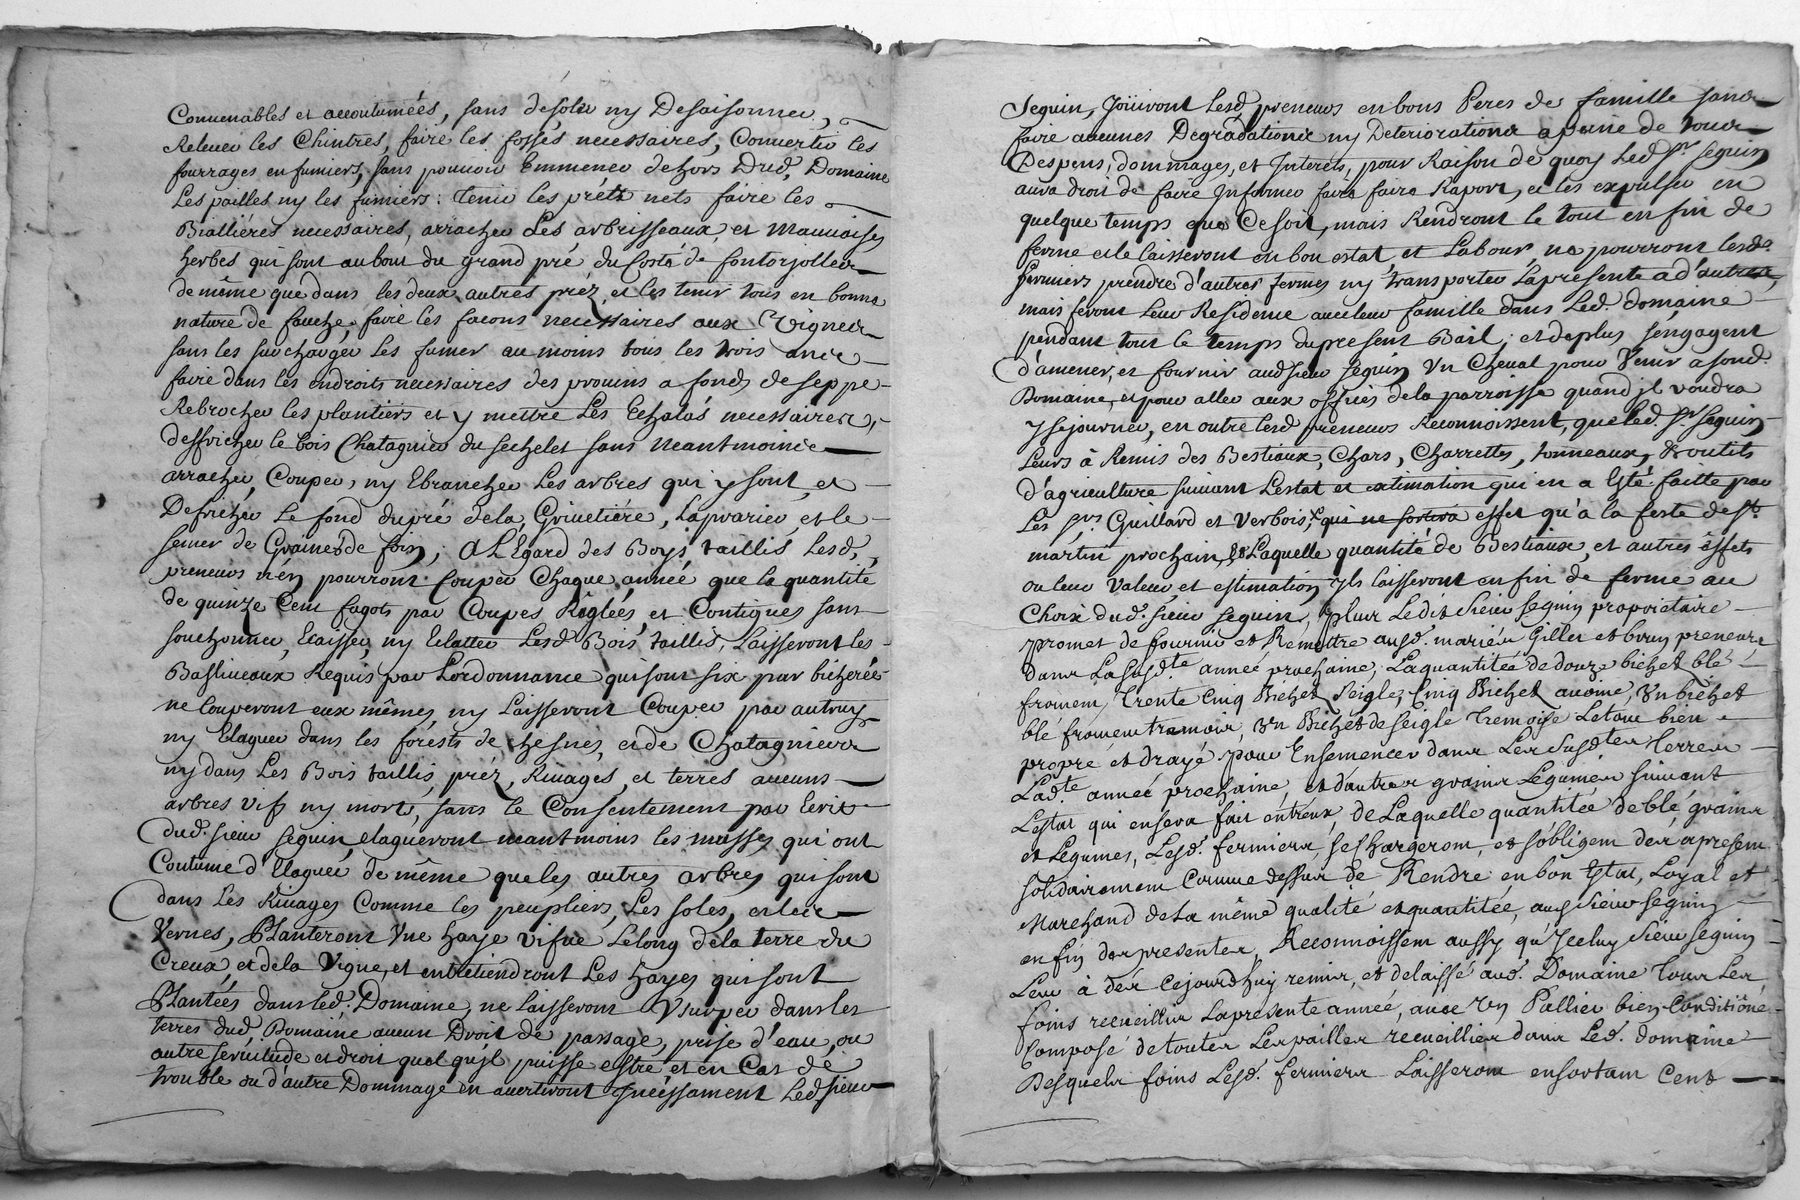 Convenables et accoutumées, sans désoler ny Desaisonner,
Relever les Chintres, faire les fossés necessaires, Convertir les
fourrages en fumiers, sans pouvoir Emmener dehors Dud. Domaine
Les pailles ny les fumiers: tenir les préts nets faire les
Biallières necessaires, arracher Les arbrisseaux et Mauvaises
herbes qui sont au bout du grand pré du Costé de
de même que dans les deux autres préz, et les tenir tous en bonne
nature de fauche, faire les facons necessaires aux Vignes
sans les surcharger Les fumer au moins tous les trois ans
faire dans les endroits necessaires des provins a fonds de seppe
Rebrocher les plantiers et y mettre Les Echalas necessaires,
deffricher le bois Chatagnier du sechelet sans neantmoins
arracher, Couper, ny Ebrancher Les arbres qui y sont, et
Defricher Le fond dupré dela Grivetière, et le
semer de Graines de foin, A L'Egard des Boys taillis Lesd.
preneurs n'en pourront Couper Chaque année que la quantité
de quinze Cent fagots par Coupes Réglées, et Contigues sans
ny Eclatter Lesd Bois taillis, Laisseront les
Bastiveaux Requis par Lordonnance qui sont six par bicherée
ne Couperont eux mêmes, ny Laisseront Couper par autruy
ny Elaguer dans les forests de chesnes, et de Chatagniers
ny dans Les Bois taillis, préz, Rivages, et terres aucuns
arbres vifs ny morts, sans le Consentement par Ecrit
dud. sieur seguin, elagueront neantmoins les qui ont
Coutume d'Elaguer de même que les autres arbres qui sont
dans Les Rivages Comme les peupliers, Les soles, et les
Vernes, Planteront Vne haye vifve Le long dela terre du
Creux et dela Vigne, et entretiendront Les hayes qui sont
Plantées dans led. Domaine, ne laisseront Vsurper dans les
terres dud. Domaine aucun Droit de passage, prise d'eau, ou
autre servitude et droit quel qu'il puisse estre et en Cas de
trouble ou d'autre Dommage en avertiront Led sieur
Seguin, Joüiront Lesd preneurs en bons Peres de famille sans
faire aucunes Dégradations ny Deteriorations a peine de tous
Despens, dommages, et Interets, pour Raison de quoy Led Sr. seguin
aura droit de faire Informer faire faire Raport, et les expulser en
quelque temps que Ce soit, mais Rendront le tout en fin de
ferme et le laisseront en bon estat et Labour, ne pourront lesd.
fermiers prendre d'autres fermes ny transporter La presente a d'autres,
mais feront Leur Residence avec leur famille dans Led. domaine
pendant tout le temps du present Bail; et de plus s'engagent
d'amener, et fournir aud sieur seguin Vn Cheval pour Venir a son d.
Domaine, et pour aller aux offices dela parroisse quand il voudra
y sejourner, en outre lesd preneurs Reconnoissent, que led. Sr. seguin
Leurs à Remis des Bestiaux, Chars, Charrettes, tonneaux, & outils
d'agriculture suivant L'estat et estimation qui en a Esté faitte par
Les Srs. Guillard et Verbois, qui ne sortira effet qu'à la feste de St.
martin prochain, Laquelle quantité de Bestiaux, et autres èffets
ou leur Valeur et estimation Ils laisseront en fin de ferme au
Choix dud. sieur seguin, plus Ledit Sieur seguin propriétaire
promet de fournir et Remettre ausd. mariés Gillet et brun preneurs
dans La susd.te année prochaine, La quantitée de douze bichet blé
froment, trente Cinq Bichet Seigle, Cinq Bichet avoine, Vn bichet
blé froment tramoir, Vn Bichet de seigle tremoise Le tout bien
propre et drayé pour Ensemencer dans Les Susd.tes terres
Lad.te année prochaine, et d'autres grains Légumes suivant
L'estat qui en sera fait entreux, de Laquelle quantitée de blé, grains
et Légumes, Lesd. fermiers se Chargeront, et s'obligent des apresent
solidairement Comme dessus de Rendre en bon Estat, Loyal et
Marchand de La même qualité et quantitée, aud Sieur seguin
en fin des presentes, Reconnoissent aussy qu'Iceluy Sieur seguin
Leur à dés Cejourdhuy remis, et delaissé aud. Domaine tous Les
foins recueillis La presente année, avec Vn Pallier bien Conditiöné
Composé de toutes Les pailles recueillies dans Led. domaine
Desquels foins Lesd. fermiers Laisseront en sortant Cent